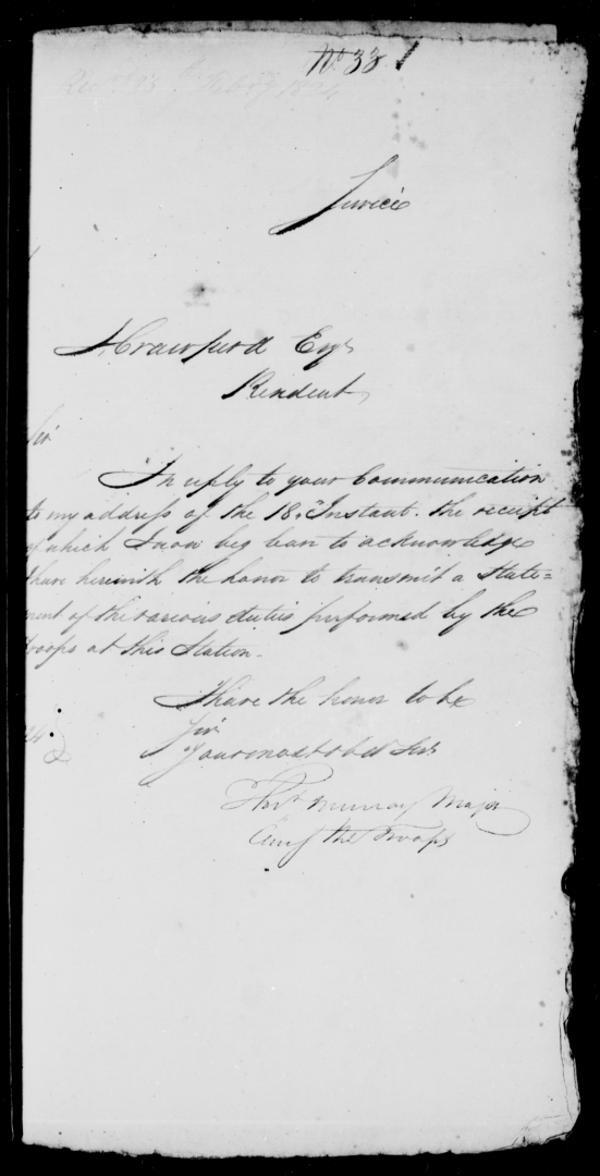 No 33
Recd 23 Feby 1824
Service
J Crawfurd Esqr
Resident
Sir
In reply to your Communication
to my address of the 18th Instant. the receipt
of which I now beg leave to acknowledge
I have herewith the honor to transmit a State=
ment of the various duties performed by the
troops at this Station.
I have the honor to be
24.
Sir
Your most obdt Servt
Murray Major
Comg the Troops